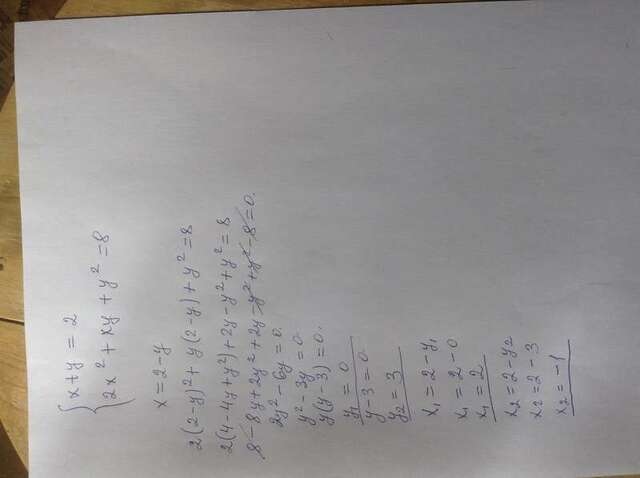 x + y = 2
2x² + xy + y² = 8
x = 2 - y
2(2-y)² + y(2-y) + y² = 8
2(4 - 4y + y²) + 2y - y² + y² = 8
8 - 8y + 2y² + 2y - y² + y² - 8 = 0.
2y² - 6y = 0.
y² - 3y = 0
y(y-3) = 0.
y₁ = 0
y - 3 = 0
y₂ = 3
x₁ = 2 - y₁
x₁ = 2 - 0
x₁ = 2
x₂ = 2 - y₂
x₂ = 2 - 3
x₂ = -1